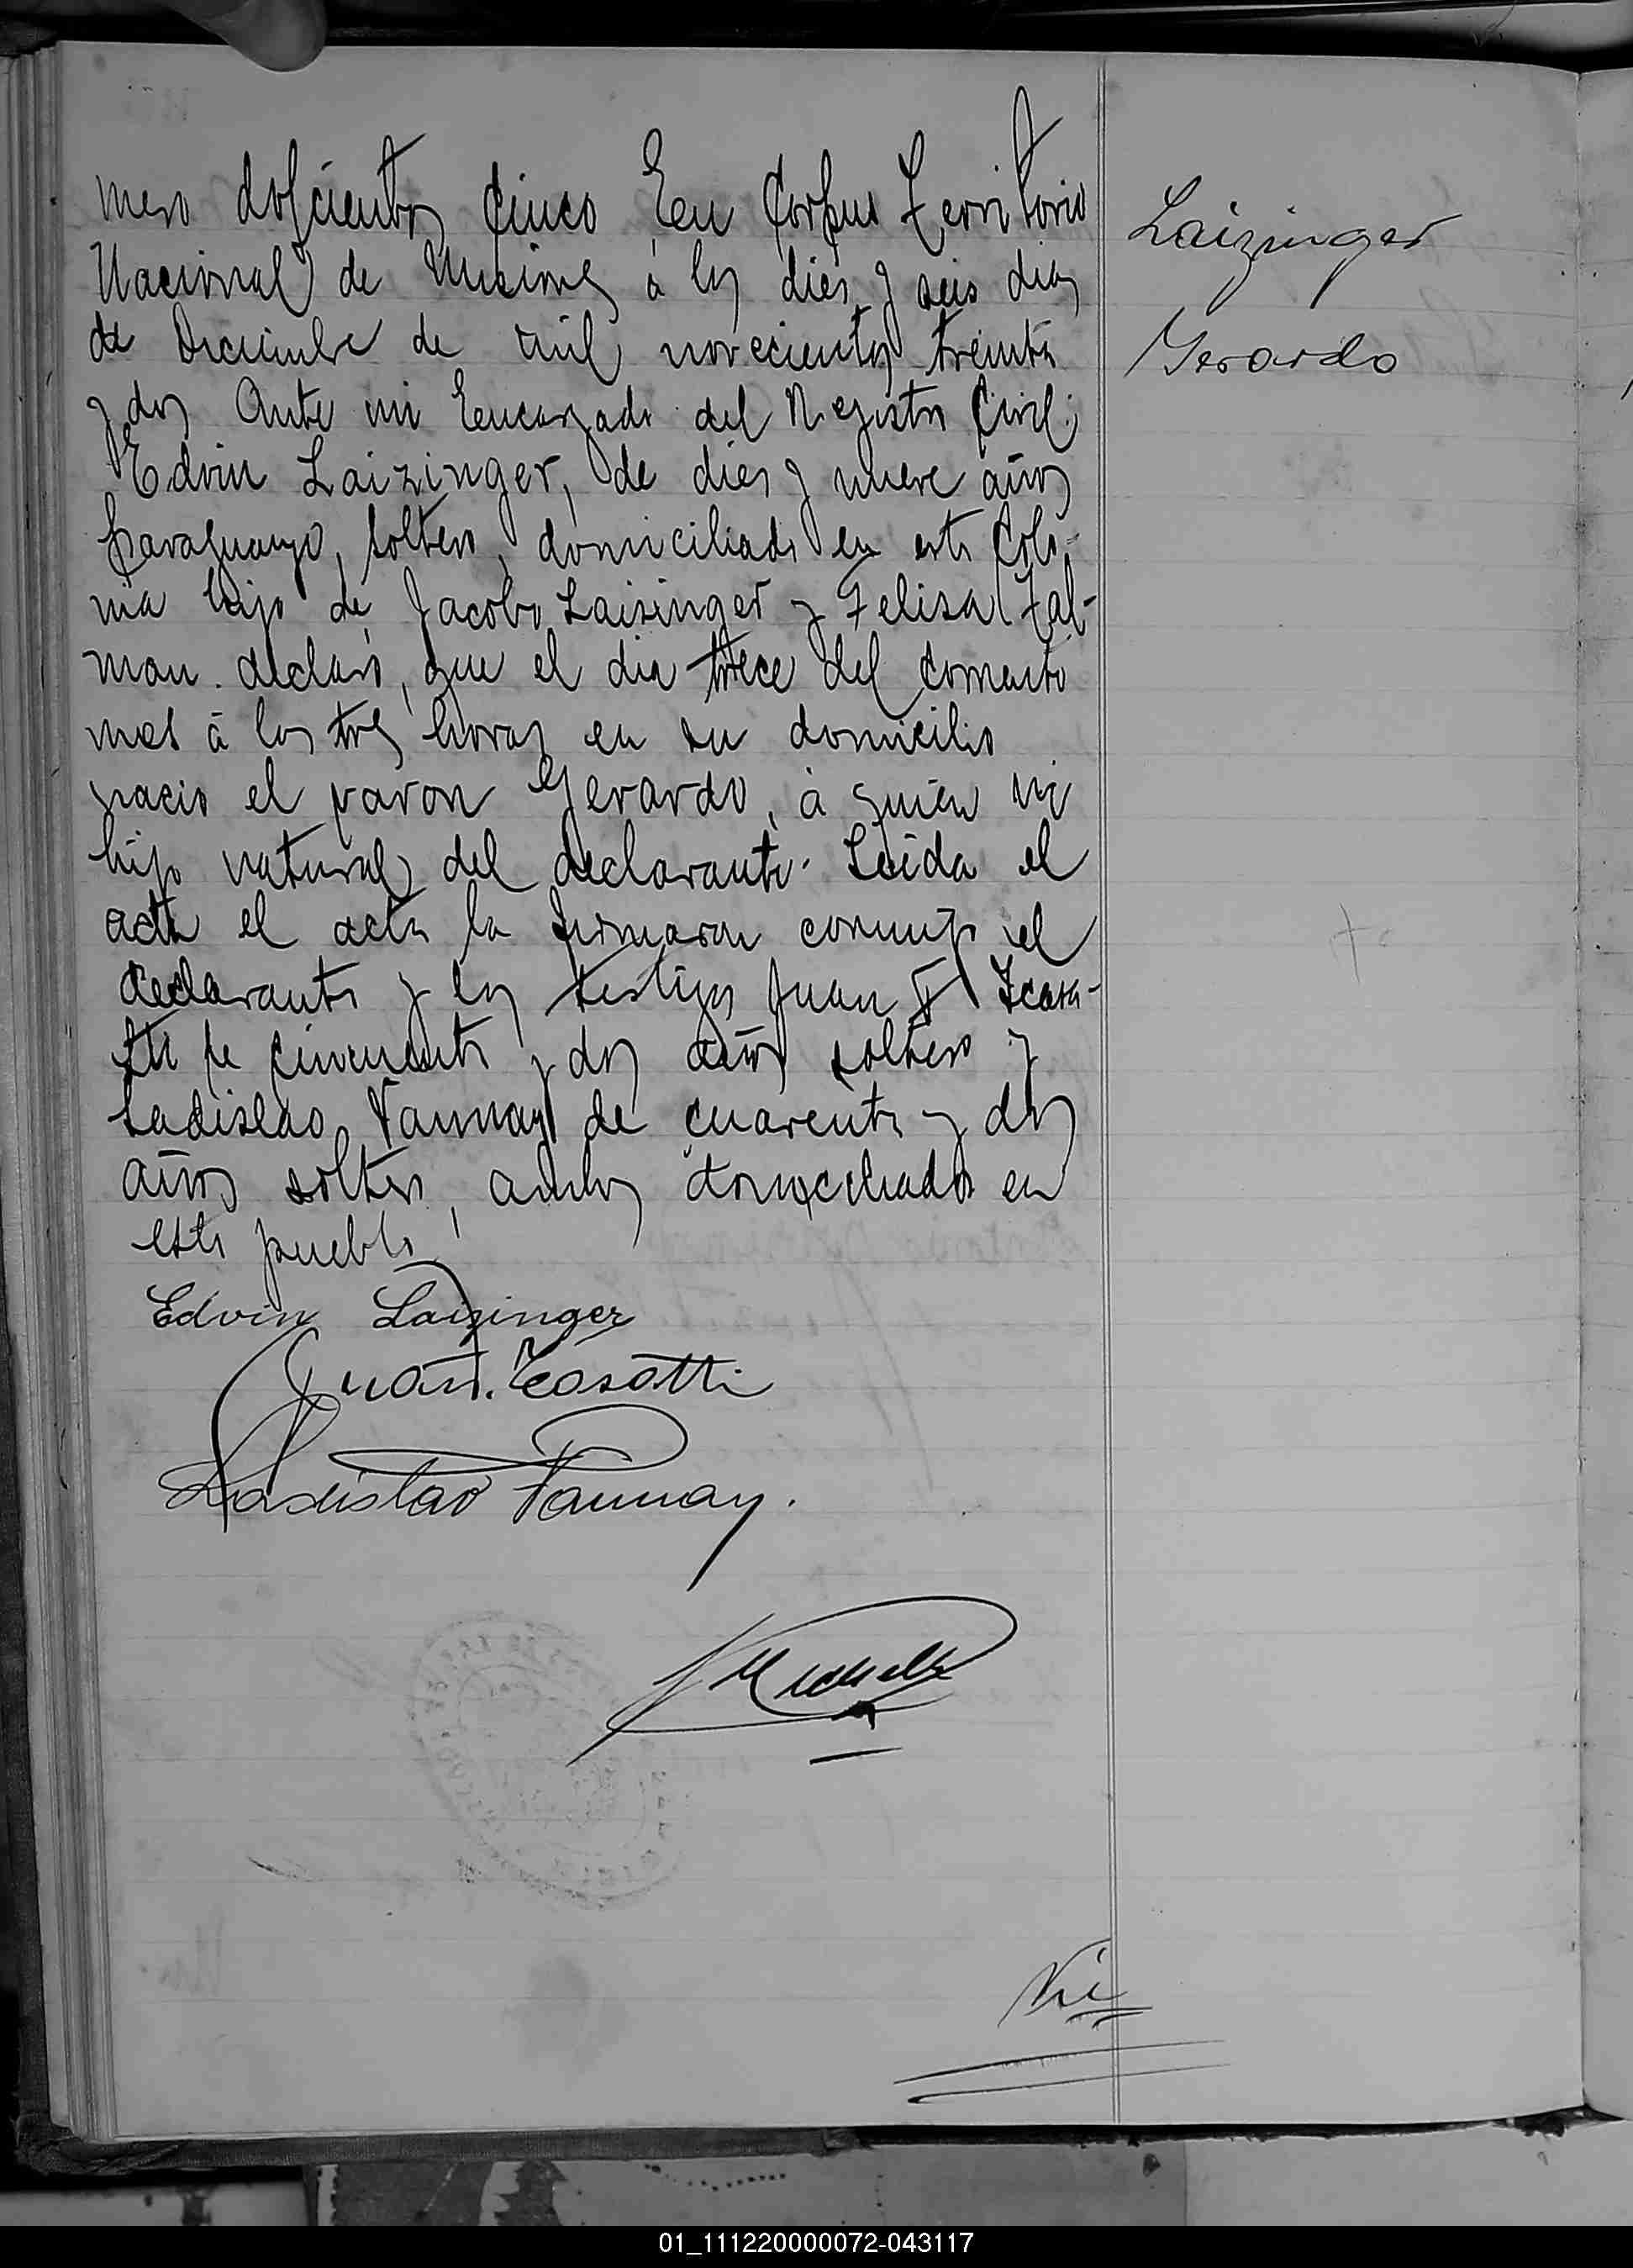 mero doscientos Cinco En Corpus Territorio
Nacional de Misiones á los dies y seis dias
de Diciembre de mil novecientos treinta
y dos Ante mi Encargado del Registro Civil:
Edvin Laizinger, de dies y nueve años
Paraguayo, soltero, domiciliado en esta Colo-
nia hijo de Jacobo Laisinger y Felisa Tal-
man. declaró, que el dia trece del corriente
mes á las tres horas en su domicilio
nacio el varon Gerardo, á quién vi
hijo natural del declarante. Leida el
acta el acta la firmaron conmigo el
declarante y los testigos Juan
de cincuenta y dos años soltero y
Ladislao Vannay de cuarenta y dos
años soltero, ambos domiciliados en
este pueblo
Edvin Laizinger
Ladislao Vannay.
Laizinger
Gerardo
01_111220000072-043117